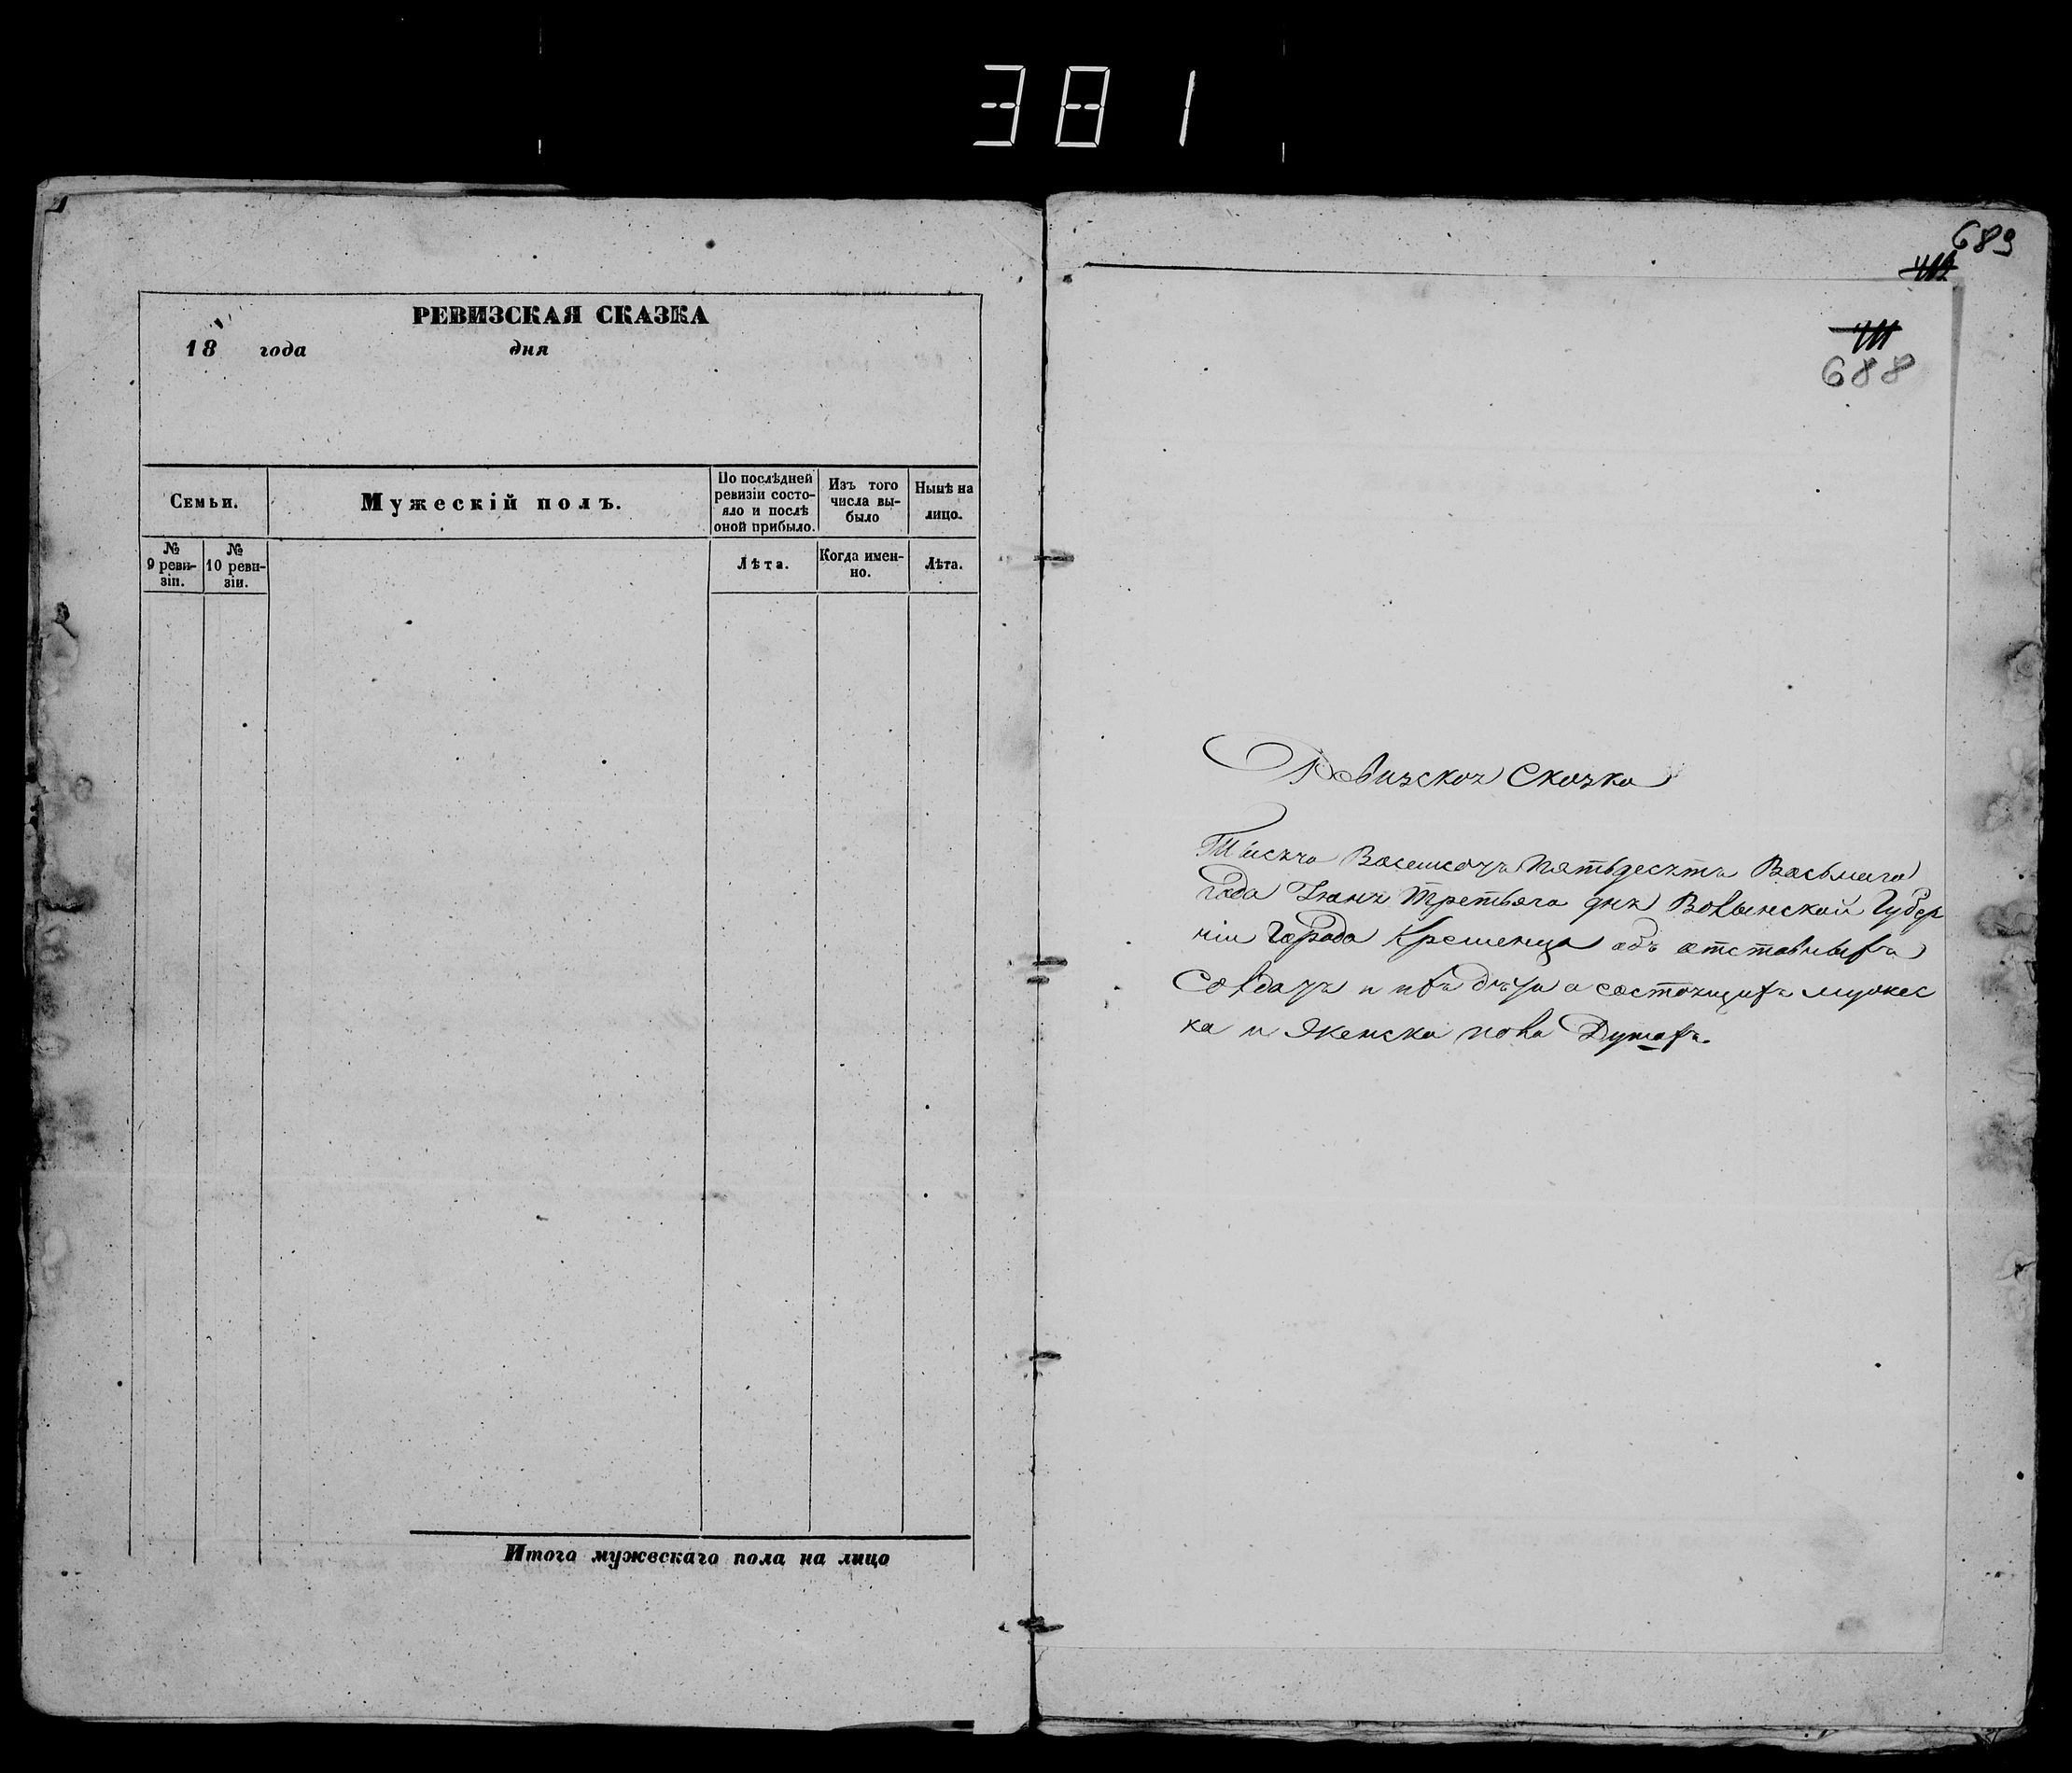 381
РЕВИЗСКАЯ СКАЗКА
18 года дня
Семьи.
Мужескій полъ.
По послѣдней ревизіи состо-
яло и послѣ
оной прибыло.
Изъ того
числа вы-
было
Нынѣ на
лицо.
№
9 реви-
зіи.
№
10 реви-
зіи.
Лѣта.
Когда имен-
но.
Лѣта.
Итого мужескаго пола на лицо
689
688
Ревизская Сказка
Тысяча Восемсотъ Пятьдесятъ Восьмаго
года Іюня Третьяго дня Волынской Губер
ніи Города Кременца объ отставныхъ
Солдатъ и ихъ состоящихъ мужес
ка и Женска пола Душахъ.